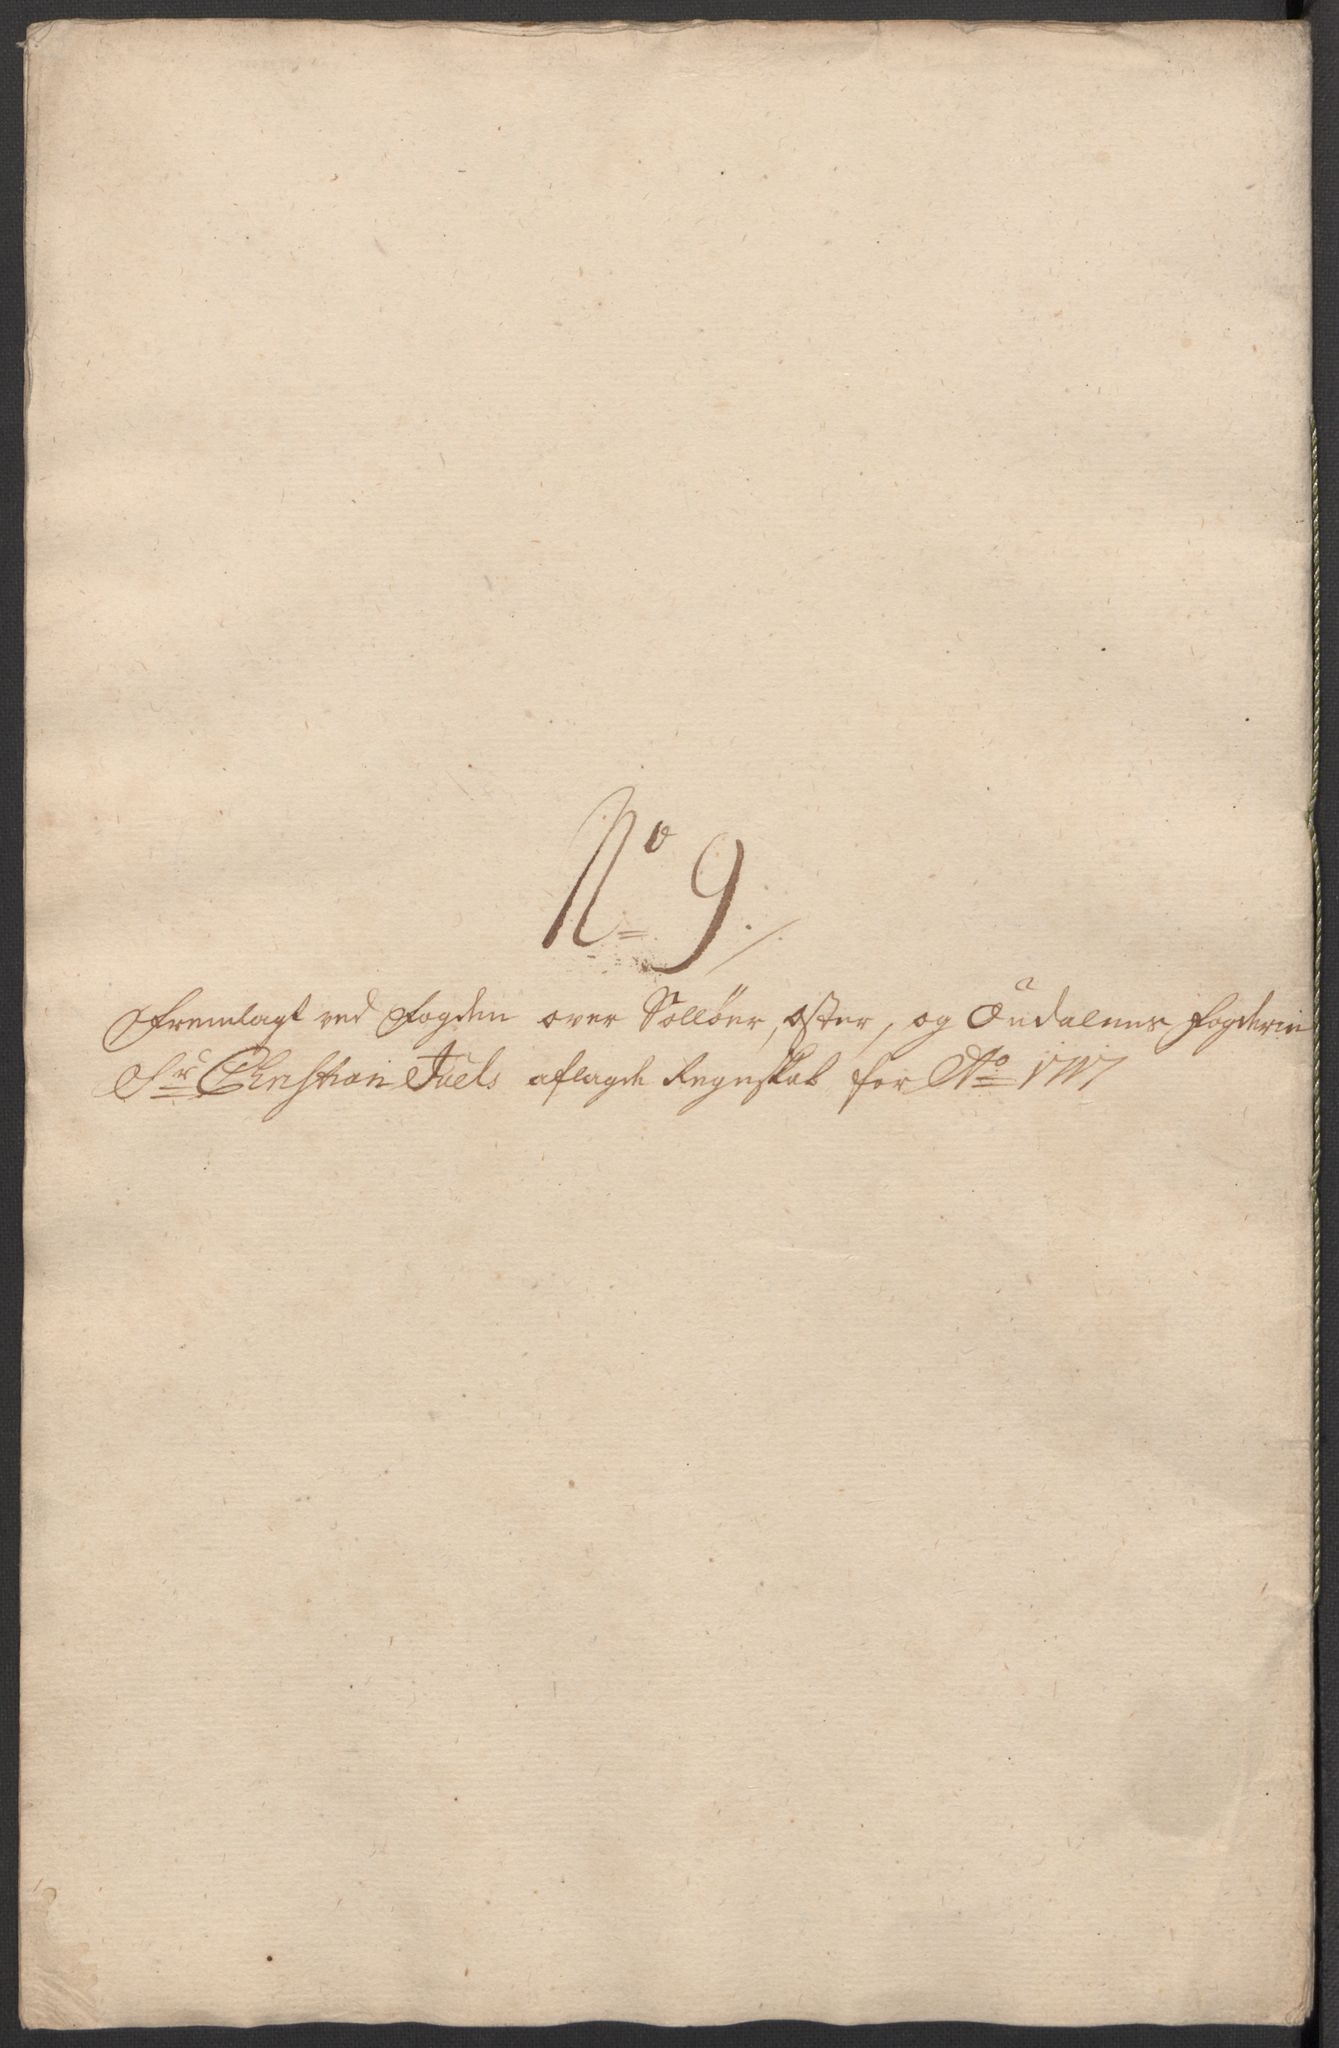 No 9.
Fremlagt ved Fogden over Sollöer, oster, og Oudalens fogderie
Sr Christian Juels aflagde Regnskab for Ao 1717